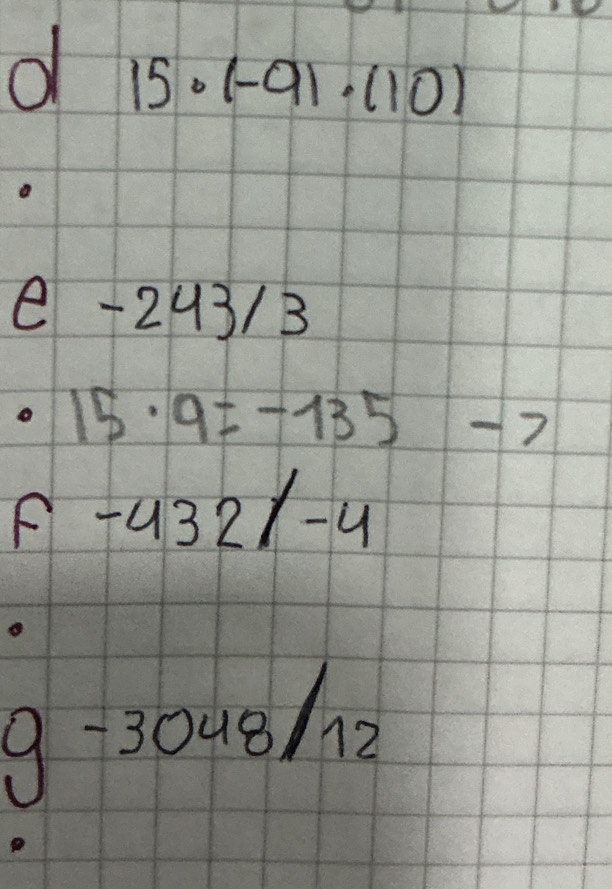 d 15 · (-9) · (10)
•
e -243/3
• 15 · 9 = -135 ->
F -432/-4
•
g -3048/12
•